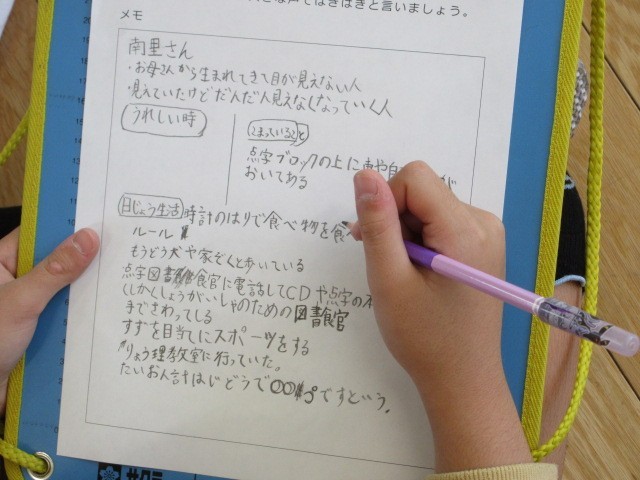 な声ではきはきと言いましょう。
メモ
南里さん
・お母さんから生まれてきて目が見えない人
・見えていたけどだんだん見えなくなっていく人
うれしい時
こまっていること
点字ブロックの上に車や自
おいてある
日じょう生活
時計のはりで食べ物を食べ
ルール
もうどう犬や家ぞくと歩いている
点字図書館に電話してCDや点字の本
(しかくしょうがいしゃのための図書館
手でさわってしる
すずを目当てにスポーツをする
りょう理教室に行っていた。
たいおん計はじどうで○○°ですという。
サクラ